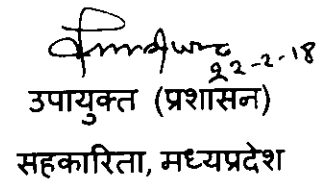 22-2-18
उपायुक्त (प्रशासन)
सहकारिता, मध्यप्रदेश